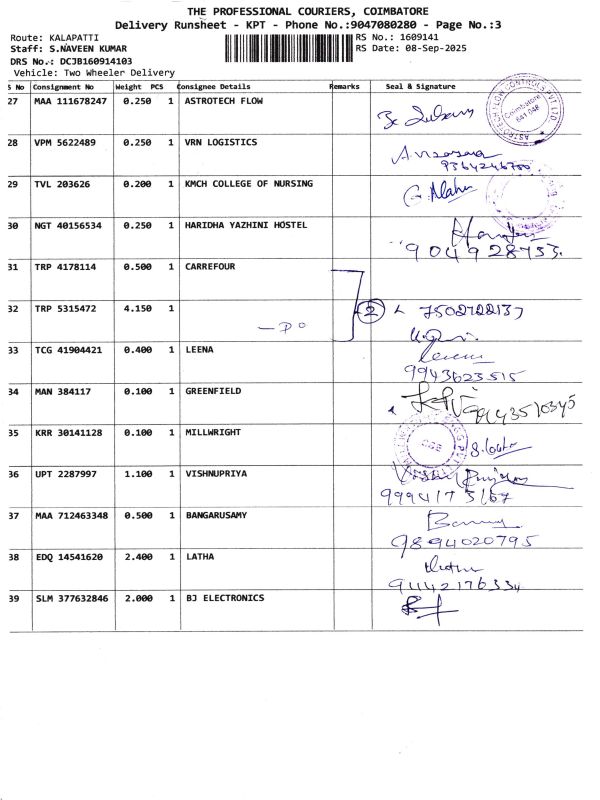 THE PROFESSIONAL COURIERS, COIMBATORE
Delivery Runsheet - KPT - Phone No.:9047080280 - Page No.:3
Route: KALAPATTI
Staff: S.NAVEEN KUMAR
DRS No.: DCJB160914103
Vehicle: Two Wheeler Delivery
RS No.: 1609141
RS Date: 08-Sep-2025
S No Consignment No Weight PCS Consignee Details Remarks Seal & Signature
27 MAA 111678247 0.250 1 ASTROTECH FLOW
ASTROTECH FLOW CONTROLS PVT LTD
Coimbatore
641 048
28 VPM 5622489 0.250 1 VRN LOGISTICS
9364246750
29 TVL 203626 0.200 1 KMCH COLLEGE OF NURSING
30 NGT 40156534 0.250 1 HARIDHA YAZHINI HOSTEL
904928753
31 TRP 4178114 0.500 1 CARREFOUR
32 TRP 5315472 4.150 1
2 7502722137
33 TCG 41904421 0.400 1 LEENA
9943623515
34 MAN 384117 0.100 1 GREENFIELD
9943510345
35 KRR 30141128 0.100 1 MILLWRIGHT
36 UPT 2287997 1.100 1 VISHNUPRIYA
9994175167
37 MAA 712463348 0.500 1 BANGARUSAMY
9894020795
38 EDQ 14541620 2.400 1 LATHA
9442176334
39 SLM 377632846 2.000 1 BJ ELECTRONICS